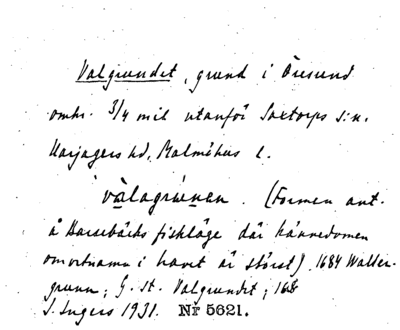 Valgrundet, grund i Öresund
omkr. 3/4 mil utanför Saxtorps sn.
Harjagers hd, Malmöhus l.
válagrúnen. (Formen ant.
å Barsebäcks fiskläge där kännedomen
om ortnamn i havet är störst). 1684 Waller-
grunn; G. st. Valgrundet; 168
I. Ingers 1931. Nr 5621.